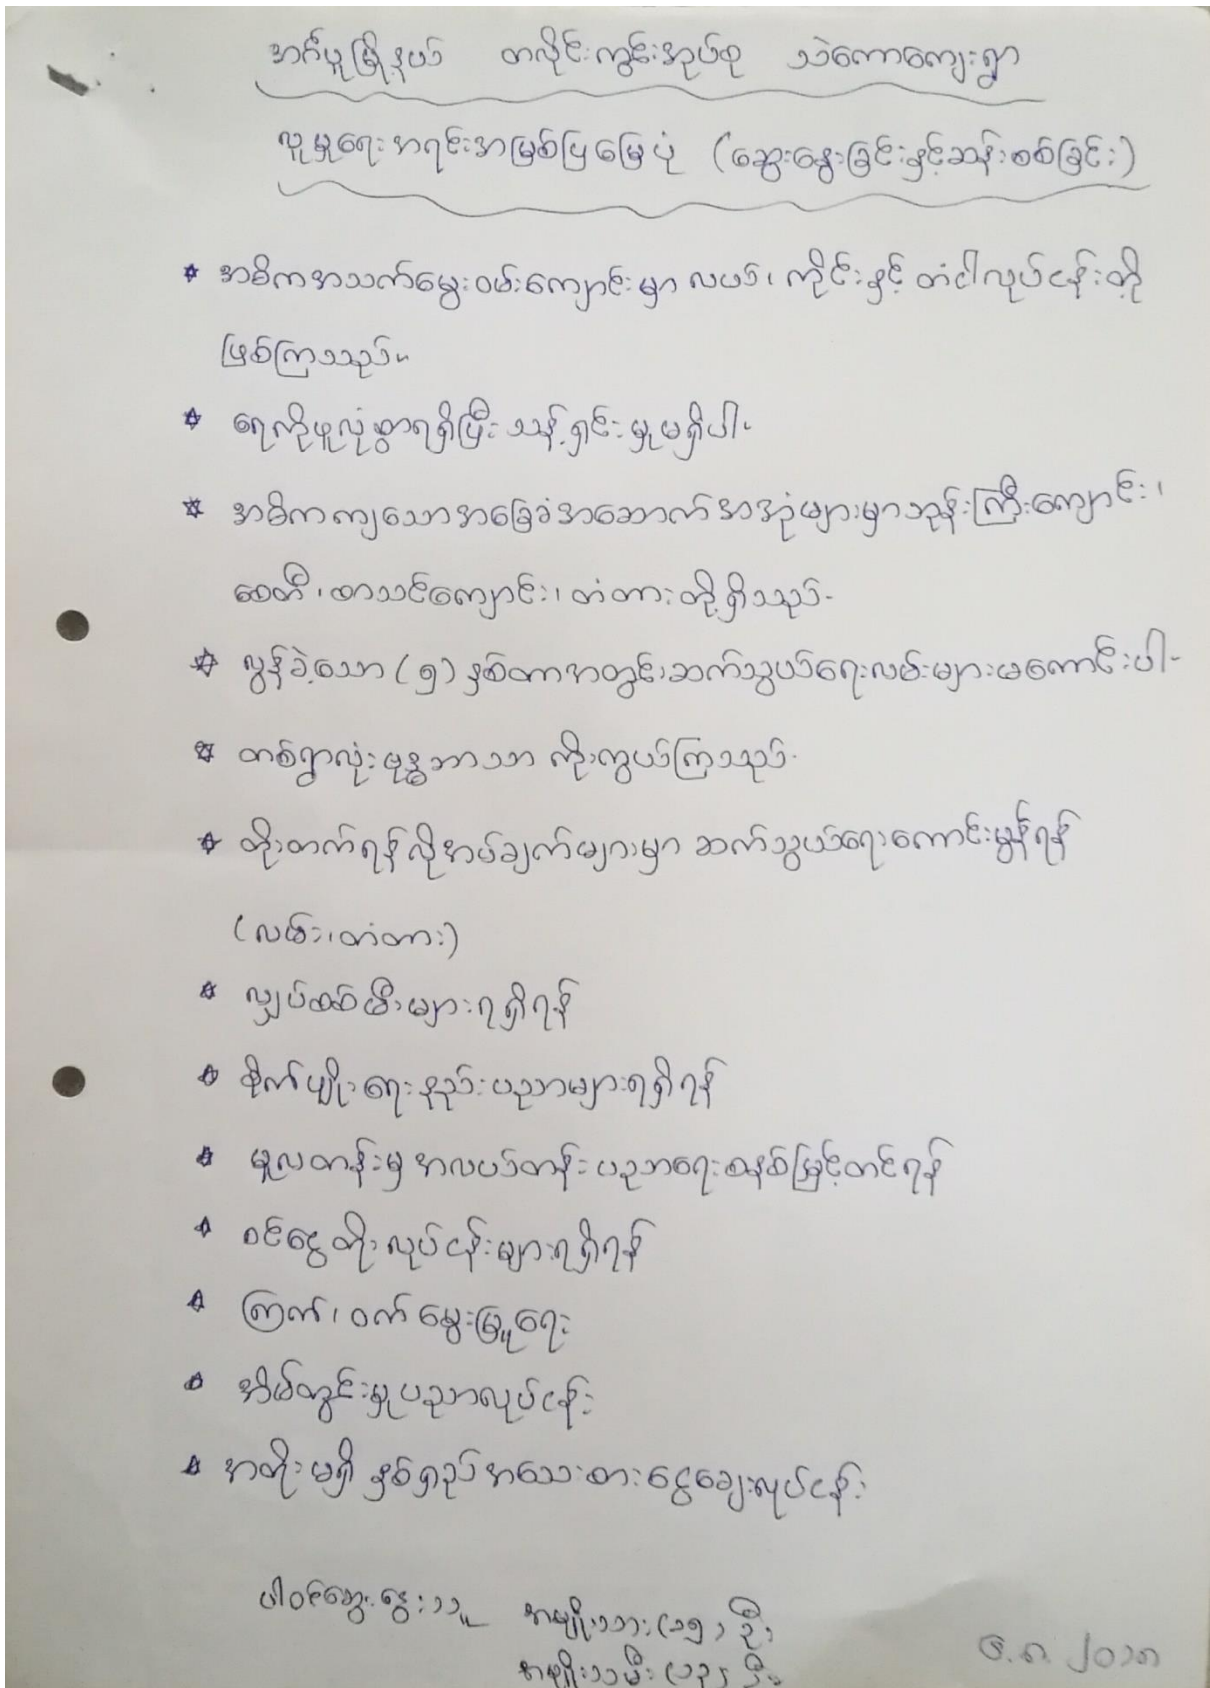 အင်္ဂပူမြို့နယ် တလိုင်းကွင်းအုပ်စု သဲကောကျေးရွာ
လူမှုရေးအရင်းအမြစ်ပြမြေပုံ (ဆွေးနွေးခြင်းနှင့်ဆန်းစစ်ခြင်း)
* အဓိကအသက်မွေးဝမ်းကျောင်းမှာ လယ်၊ ကိုင်းနှင့် တံငါလုပ်ငန်းတို့
ဖြစ်ကြသည်။
* ရေကိုယူလုံစွာရရှိပြီး သန့်ရှင်းမှုမရှိပါ။
* အဓိကကျသောအခြေခံအဆောက်အအုံများမှာဘုန်းကြီးကျောင်း၊
စေတီ၊ စာသင်ကျောင်း၊ တံတားတို့ရှိသည်။
* လွန်ခဲ့သော (၅) နှစ်တာအတွင်းဆက်သွယ်ရေးလမ်းများမကောင်းပါ။
* တစ်ရွာလုံးဗုဒ္ဓဘာသာ ကိုးကွယ်ကြသည်။
* တိုးတက်ရန်လိုအပ်ချက်များမှာ ဆက်သွယ်ရေးကောင်းမွန်ရန်
(လမ်း၊တံတား)
* လျှပ်စစ်မီးများရရှိရန်
* စိုက်ပျိုးရေးနည်းပညာများရရှိရန်
* မူလတန်းမှ အလယ်တန်း ပညာရေးစနစ်မြှင့်တင်ရန်
* ဝင်ငွေတိုးလုပ်ငန်းများရရှိရန်
* ကြက်၊ ဝက်မွေးမြူရေး
* အိမ်တွင်းမှုပညာလုပ်ငန်း
* အတိုးမရှိ နှစ်ရှည်အသေးစားငွေချေးလုပ်ငန်း
ပါဝင်ဆွေးနွေးသူ အမျိုးသား (၁၅) ဦး
အမျိုးသမီး ဦး
၂၀၁၈